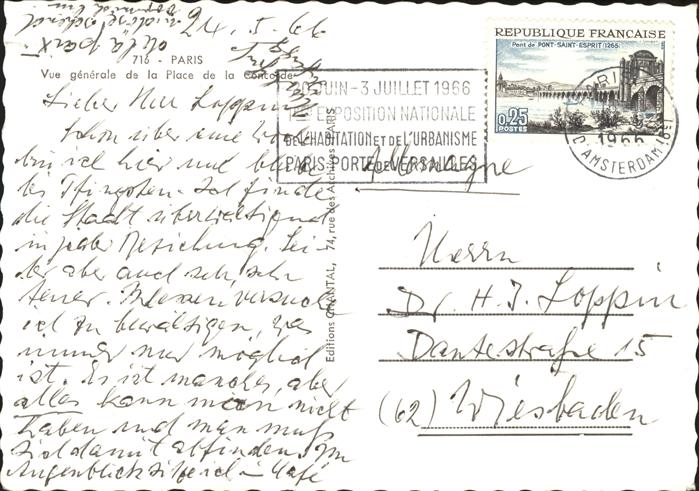 24. 5. 66
716 - PARIS
Vue générale de la Place de la Concorde
Lieber Herr Loppin
Schon über eine Woche
bin ich hier und bleibe
bis Pfingsten. Ich finde
die Stadt überwältigend
in jeder Beziehung. Lei-
der aber auch sehr, sehr
teuer. Indessen versuche
ich zu bewältigen, was
immer nur möglich
ist. Es ist manches, aber
alles kann man nicht
haben und man muß
sich damit abfinden. Im
Augenblick sitze ich im Café
de la paix
Editions CHANTAL, 74, rue des Archives - PARIS
20 JUIN - 3 JUILLET 1966
EXPOSITION NATIONALE
DE L'HABITATION ET DE L'URBANISME
PARIS PORTE DE VERSAILLES
REPUBLIQUE FRANÇAISE
Pont de PONT-SAINT-ESPRIT (1265)
0,25
POSTES
PARIS
1966
D'AMSTERDAM
Allemagne
Herrn
Dr. H. J. Loppin
Dantestraße 15
(62) Wiesbaden